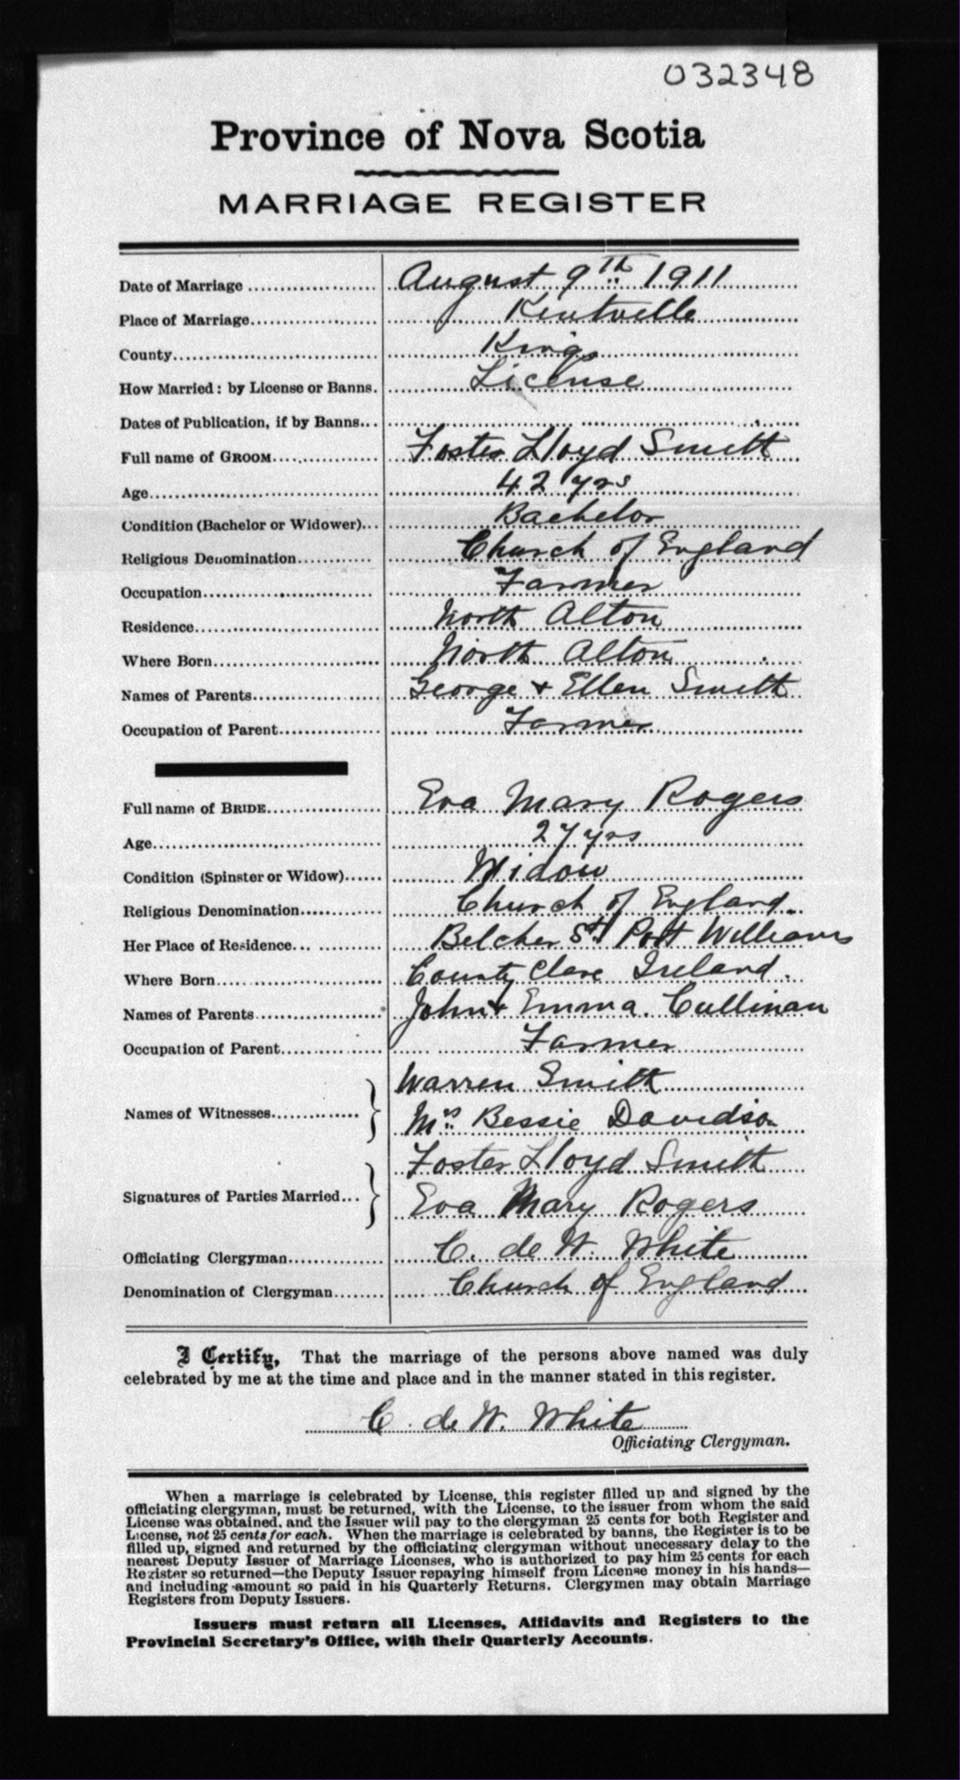 032348
Province of Nova Scotia
MARRIAGE REGISTER
Date of Marriage August 9th 1911
Place of Marriage Kentville
County Kings
How Married: by License or Banns. License
Dates of Publication, if by Banns
Full name of GROOM Foster Lloyd Smith
Age 42 yrs
Condition (Bachelor or Widower) Bachelor
Religious Denomination Church of England
Occupation Farmer
Residence North Alton
Where Born North Alton
Names of Parents George & Ellen Smith
Occupation of Parent Farmer
Full name of BRIDE Eva Mary Rogers
Age 27 yrs
Condition (Spinster or Widow) Widow
Religious Denomination Church of England
Her Place of Residence Belcher St Port Williams
Where Born County Clare Ireland.
Names of Parents John & Emma. Cullinan
Occupation of Parent Farmer
Names of Witnesses Warren Smith
Mrs Bessie Davidson
Signatures of Parties Married Foster Lloyd Smith
Eva Mary Rogers
Officiating Clergyman C. de W. White
Denomination of Clergyman Church of England
I Certify, That the marriage of the persons above named was duly
celebrated by me at the time and place and in the manner stated in this register.
C. de W. White
Officiating Clergyman.
When a marriage is celebrated by License, this register filled up and signed by the
officiating clergyman, must be returned, with the License, to the issuer from whom the said
License was obtained, and the Issuer will pay to the clergyman 25 cents for both Register and
License, not 25 cents for each. When the marriage is celebrated by banns, the Register is to be
filled up, signed and returned by the officiating clergyman without unecessary delay to the
nearest Deputy Issuer of Marriage Licenses, who is authorized to pay him 25 cents for each
Register so returned—the Deputy Issuer repaying himself from License money in his hands—
and including amount so paid in his Quarterly Returns. Clergymen may obtain Marriage
Registers from Deputy Issuers.
Issuers must return all Licenses, Affidavits and Registers to the
Provincial Secretary's Office, with their Quarterly Accounts.